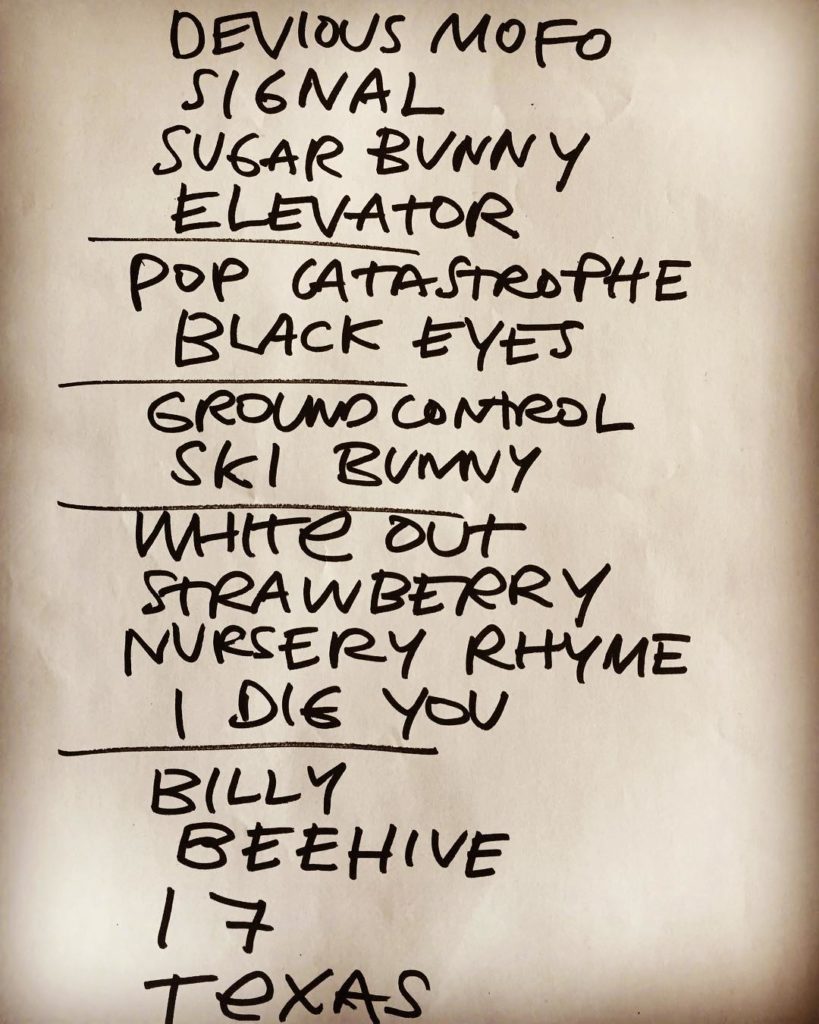 DEVIOUS MOFO
SIGNAL
SUGAR BUNNY
ELEVATOR
POP CATASTROPHE
BLACK EYES
GROUND CONTROL
SKI BUNNY
WHITe OUT
STRAWBERRY
NURSERY RHYME
I DIE YOU
BILLY
BEEHIVE
17
TeXAS